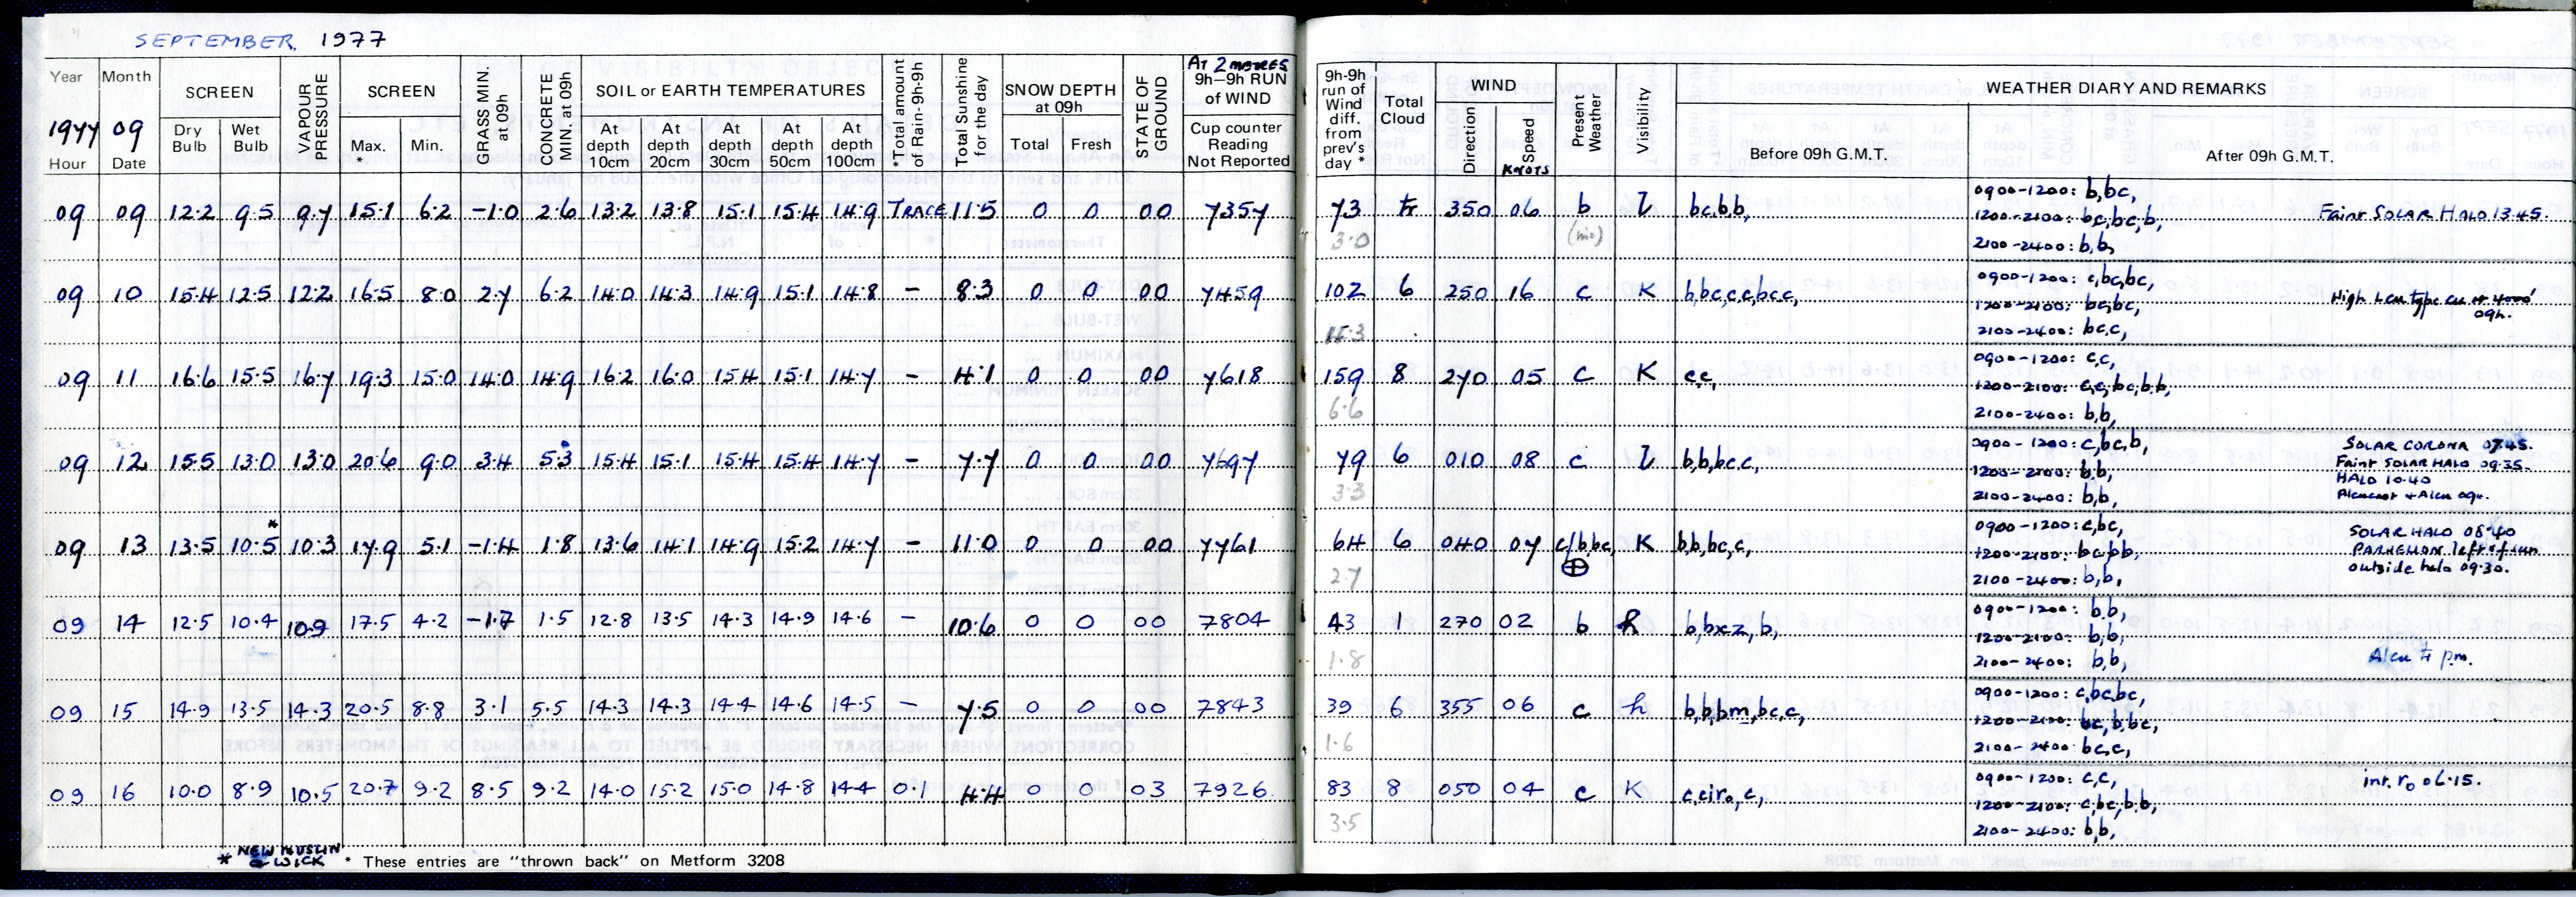 SEPTEMBER, 1977
Year Month SCREEN VAPOUR PRESSURE SCREEN GRASS MIN. at 09h CONCRETE MIN. at 09h SOIL or EARTH TEMPERATURES *Total amount of Rain-9h-9h Total Sunshine for the day SNOW DEPTH at 09h STATE OF GROUND AT 2 METRES 9h-9h RUN of WIND
1977 09 Dry Bulb Wet Bulb Max. * Min. At depth 10cm At depth 20cm At depth 30cm At depth 50cm At depth 100cm Total Fresh Cup counter Reading Not Reported
Hour Date
09 09 12.2 9.5 9.7 15.1 6.2 -1.0 2.6 13.2 13.8 15.1 15.4 14.9 TRACE 11.5 0 0 00 7357
09 10 15.4 12.5 12.2 16.5 8.0 2.7 6.2 14.0 14.3 14.9 15.1 14.8 - 8.3 0 0 00 7459
09 11 16.6 15.5 16.7 19.3 15.0 14.0 14.9 16.2 16.0 15.4 15.1 14.7 - 4.1 0 0 00 7618
09 12 15.5 13.0 13.0 20.6 9.0 3.4 5.3 15.4 15.1 15.4 15.4 14.7 - 7.7 0 0 00 7697
*
09 13 13.5 10.5 10.3 17.9 5.1 -1.4 1.8 13.6 14.1 14.9 15.2 14.7 - 11.0 0 0 00 7761
09 14 12.5 10.4 10.9 17.5 4.2 -1.7 1.5 12.8 13.5 14.3 14.9 14.6 - 10.6 0 0 00 7804
09 15 14.9 13.5 14.3 20.5 8.8 3.1 5.5 14.3 14.3 14.4 14.6 14.5 - 7.5 0 0 00 7843
09 16 10.0 8.9 10.5 20.7 9.2 8.5 9.2 14.0 15.2 15.0 14.8 14.4 0.1 4.4 0 0 03 7926
* NEW MUSLIN & WICK * These entries are "thrown back" on Metform 3208
9h-9h run of Wind diff. from prev's day * Total Cloud WIND Present Weather Visibility WEATHER DIARY AND REMARKS
Direction Speed KNOTS Before 09h G.M.T. After 09h G.M.T.
73 tr 350 06 b l bc,b,b, 0900-1200: b,bc,
1200-2100: bc,bc,b, Faint SOLAR HALO 13.45.
3.0 2100-2400: b,b,
102 6 250 16 c K b,bc,c,c,bc,c, 0900-1200: c,bc,bc,
1200-2100: bc,bc, 09h.
2100-2400: bc,c,
159 8 270 05 c K c,c, 0900-1200: c,c,
1200-2100: c,c,bc,b,b,
6.6 2100-2400: b,b,
79 6 010 08 c l b,b,bc,c, 0900-1200: c,bc,b, SOLAR CORONA 07.45.
1200-2100: b,b, Faint SOLAR HALO 09.35.
HALO 10.40
3.3 2100-2400: b,b,
64 6 040 07 c/b,bc, K b,b,bc,c, 0900-1200: c,bc, SOLAR HALO 08.40
1200-2100: bc,b,b, PARHELION left of sun
2.7 2100-2400: b,b, outside halo 09.30.
43 1 270 02 b h b,bxz,b, 0900-1200: b,b,
1200-2100: b,b,
1.8 2100-2400: b,b, Alcu tr p.m.
39 6 355 06 c h b,b,bm,bc,c, 0900-1200: c,bc,bc,
1200-2100: bc,b,bc,
1.6 2100-2400 bc,c,
83 8 050 04 c K c,ciro,c, 0900-1200: c,c, int. ro 06.15.
1200-2100: c,bc,b,b,
3.5 2100-2400: b,b,